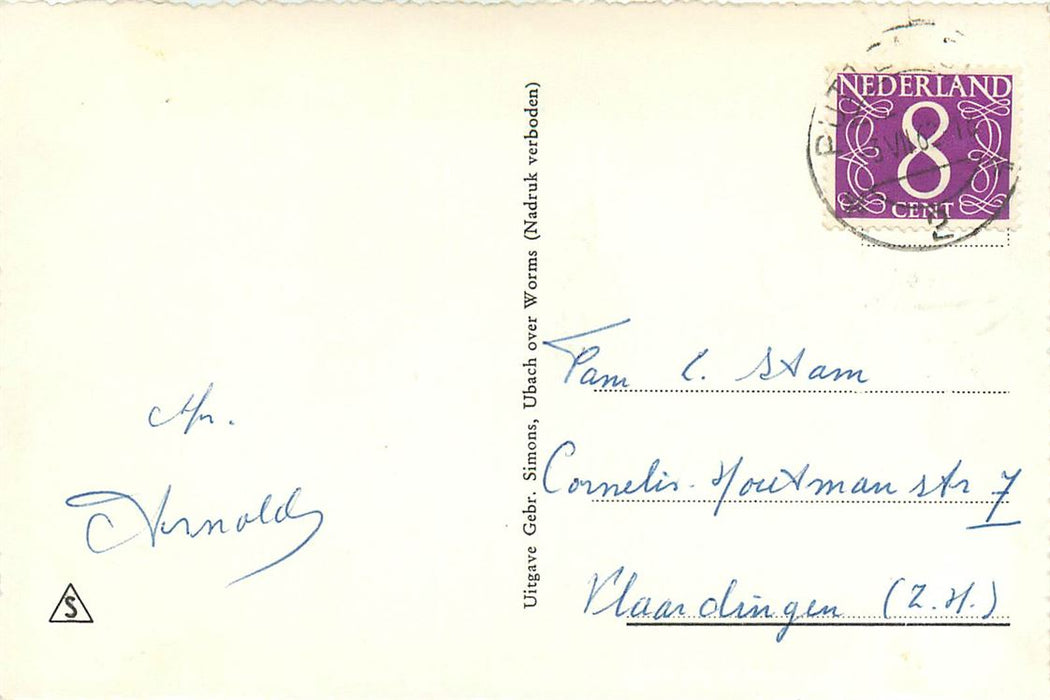 Afz.
Arnolds
S
Uitgave Gebr. Simons, Ubach over Worms (Nadruk verboden)
NEDERLAND
8
CENT
2
Fam C. Stam
Cornelis Houtman str 7
Vlaardingen (Z.H.)